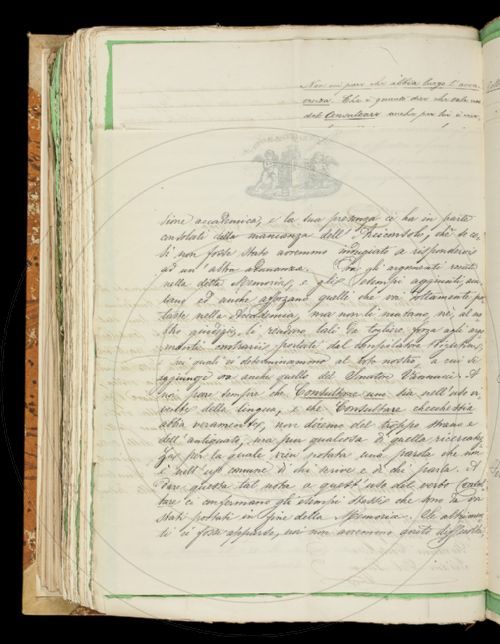 Non mi pare che abbia luogo l'avver
tenza. Chè è quanto dire che vale uno
del Consultare anche per lui è viva
sione accademica, e la sua presenza ci ha in parte
consolati della mancanza dell' Arciconsolo, chè se co-
sì non fosse stato avremmo indugiato a rispondervi
ad un' altra adunanza. Ora gli argomenti recati
nella detta Memoria, e gli esempi aggiunti, aiu
tano ed anche afforzano quelle che voi dottamente por
taste nella Accademia, ma non li mutano, nè, al no
stro giudizio, li rendono tali da togliere forza agli argo
menti contrarii portati dal compilatore
sui quali ci determinammo al voto nostro, a cui si
aggiunge ora anche quello del Senatore Vannucci. A
noi pare sempre che Consultare uno sia nell'uso vi
vente della lingua, e che Consultare checchessia
abbia veramente, non diremo del troppo strano e
dell' antiquato, ma pur qualcosa di quella ricercatez
za per la quale vien notata una parola che non
è nell' uso comune di chi scrive e di chi parla. A
dare questa tal nota a quest' uso del verbo Consul
tare ci confermano gli esempi stessi che sono da voi
stati portati in fine della Memoria. Se altrimen
ti ci fosse apparso, noi non avremmo avuto difficoltà